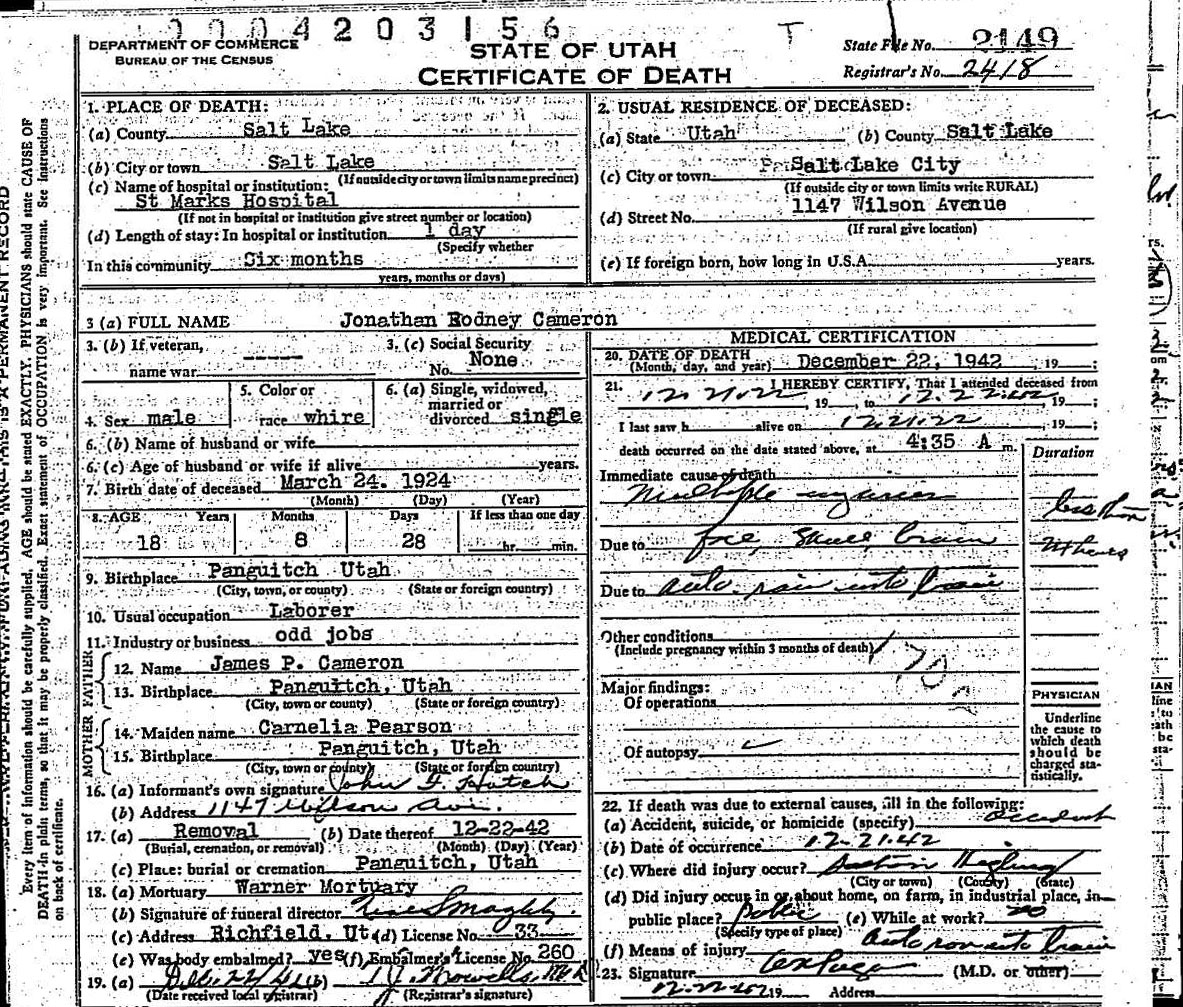 0004203156 T
DEPARTMENT OF COMMERCE
BUREAU OF THE CENSUS
STATE OF UTAH
CERTIFICATE OF DEATH
State File No. 2149
Registrar's No. 2418
Every item of information should be carefully supplied. AGE should be stated EXACTLY. PHYSICIANS should state CAUSE OF
DEATH in plain terms, so that it may be properly classified. Exact statement of OCCUPATION is very important. See instructions
on back of certificate.
1. PLACE OF DEATH:
(a) County Salt Lake
(b) City or town Salt Lake
(If outside city or town limits name precinct)
(c) Name of hospital or institution:
St Marks Hospital
(If not in hospital or institution give street number or location)
(d) Length of stay: In hospital or institution 1 day
(Specify whether
In this community Six months
years, months or days)
2. USUAL RESIDENCE OF DECEASED:
(a) State Utah (b) County Salt Lake
(c) City or town Salt Lake City
(If outside city or town limits write RURAL)
(d) Street No. 1147 Wilson Avenue
(If rural give location)
(e) If foreign born, how long in U.S.A. years.
3 (a) FULL NAME Jonathan Rodney Cameron
3. (b) If veteran, name war -----
3. (c) Social Security No. None
4. Sex male
5. Color or race whire
6. (a) Single, widowed, married or divorced single
6. (b) Name of husband or wife
6. (c) Age of husband or wife if alive years.
7. Birth date of deceased March 24. 1924
(Month) (Day) (Year)
8. AGE Years Months Days If less than one day
18 8 28 hr. min.
9. Birthplace Panguitch Utah
(City, town, or county) (State or foreign country)
10. Usual occupation Laborer
11. Industry or business odd jobs
FATHER
12. Name James P. Cameron
13. Birthplace Panguitch, Utah
(City, town or county) (State or foreign country)
MOTHER
14. Maiden name Carnelia Pearson
15. Birthplace Panguitch, Utah
(City, town or county) (State or foreign country)
16. (a) Informant's own signature John F. Hatch
(b) Address 1147 Wilson Ave.
17. (a) Removal (b) Date thereof 12-22-42
(Burial, cremation, or removal) (Month) (Day) (Year)
(c) Place: burial or cremation Panguitch, Utah
18. (a) Mortuary Warner Mortuary
(b) Signature of funeral director
(c) Address Richfield, Ut. (d) License No. 33
(e) Was body embalmed? yes (f) Embalmer's License No. 260
19. (a) Dec 22/42 (b)
(Date received local registrar) (Registrar's signature)
MEDICAL CERTIFICATION
20. DATE OF DEATH
(Month, day, and year) December 22, 1942, 19 ;
21. I HEREBY CERTIFY, That I attended deceased from
, 19 to , 19 ;
I last saw h alive on , 19 ;
death occurred on the date stated above, at 4:35 A m.
Duration
Immediate cause of death
Multiple injuries
less than
24 hours
Due to face, skull, brain
Due to auto ran into train
Other conditions
(Include pregnancy within 3 months of death)
170
Major findings:
Of operations
Of autopsy
PHYSICIAN
Underline
the cause to
which death
should be
charged sta-
tistically.
22. If death was due to external causes, fill in the following:
(a) Accident, suicide, or homicide (specify) Accident
(b) Date of occurrence 12-21-42
(c) Where did injury occur?
(City or town) (County) (State)
(d) Did injury occur in or about home, on farm, in industrial place, in
public place? Public (e) While at work? no
(Specify type of place)
(f) Means of injury Auto ran into train
23. Signature (M.D. or other)
19 Address